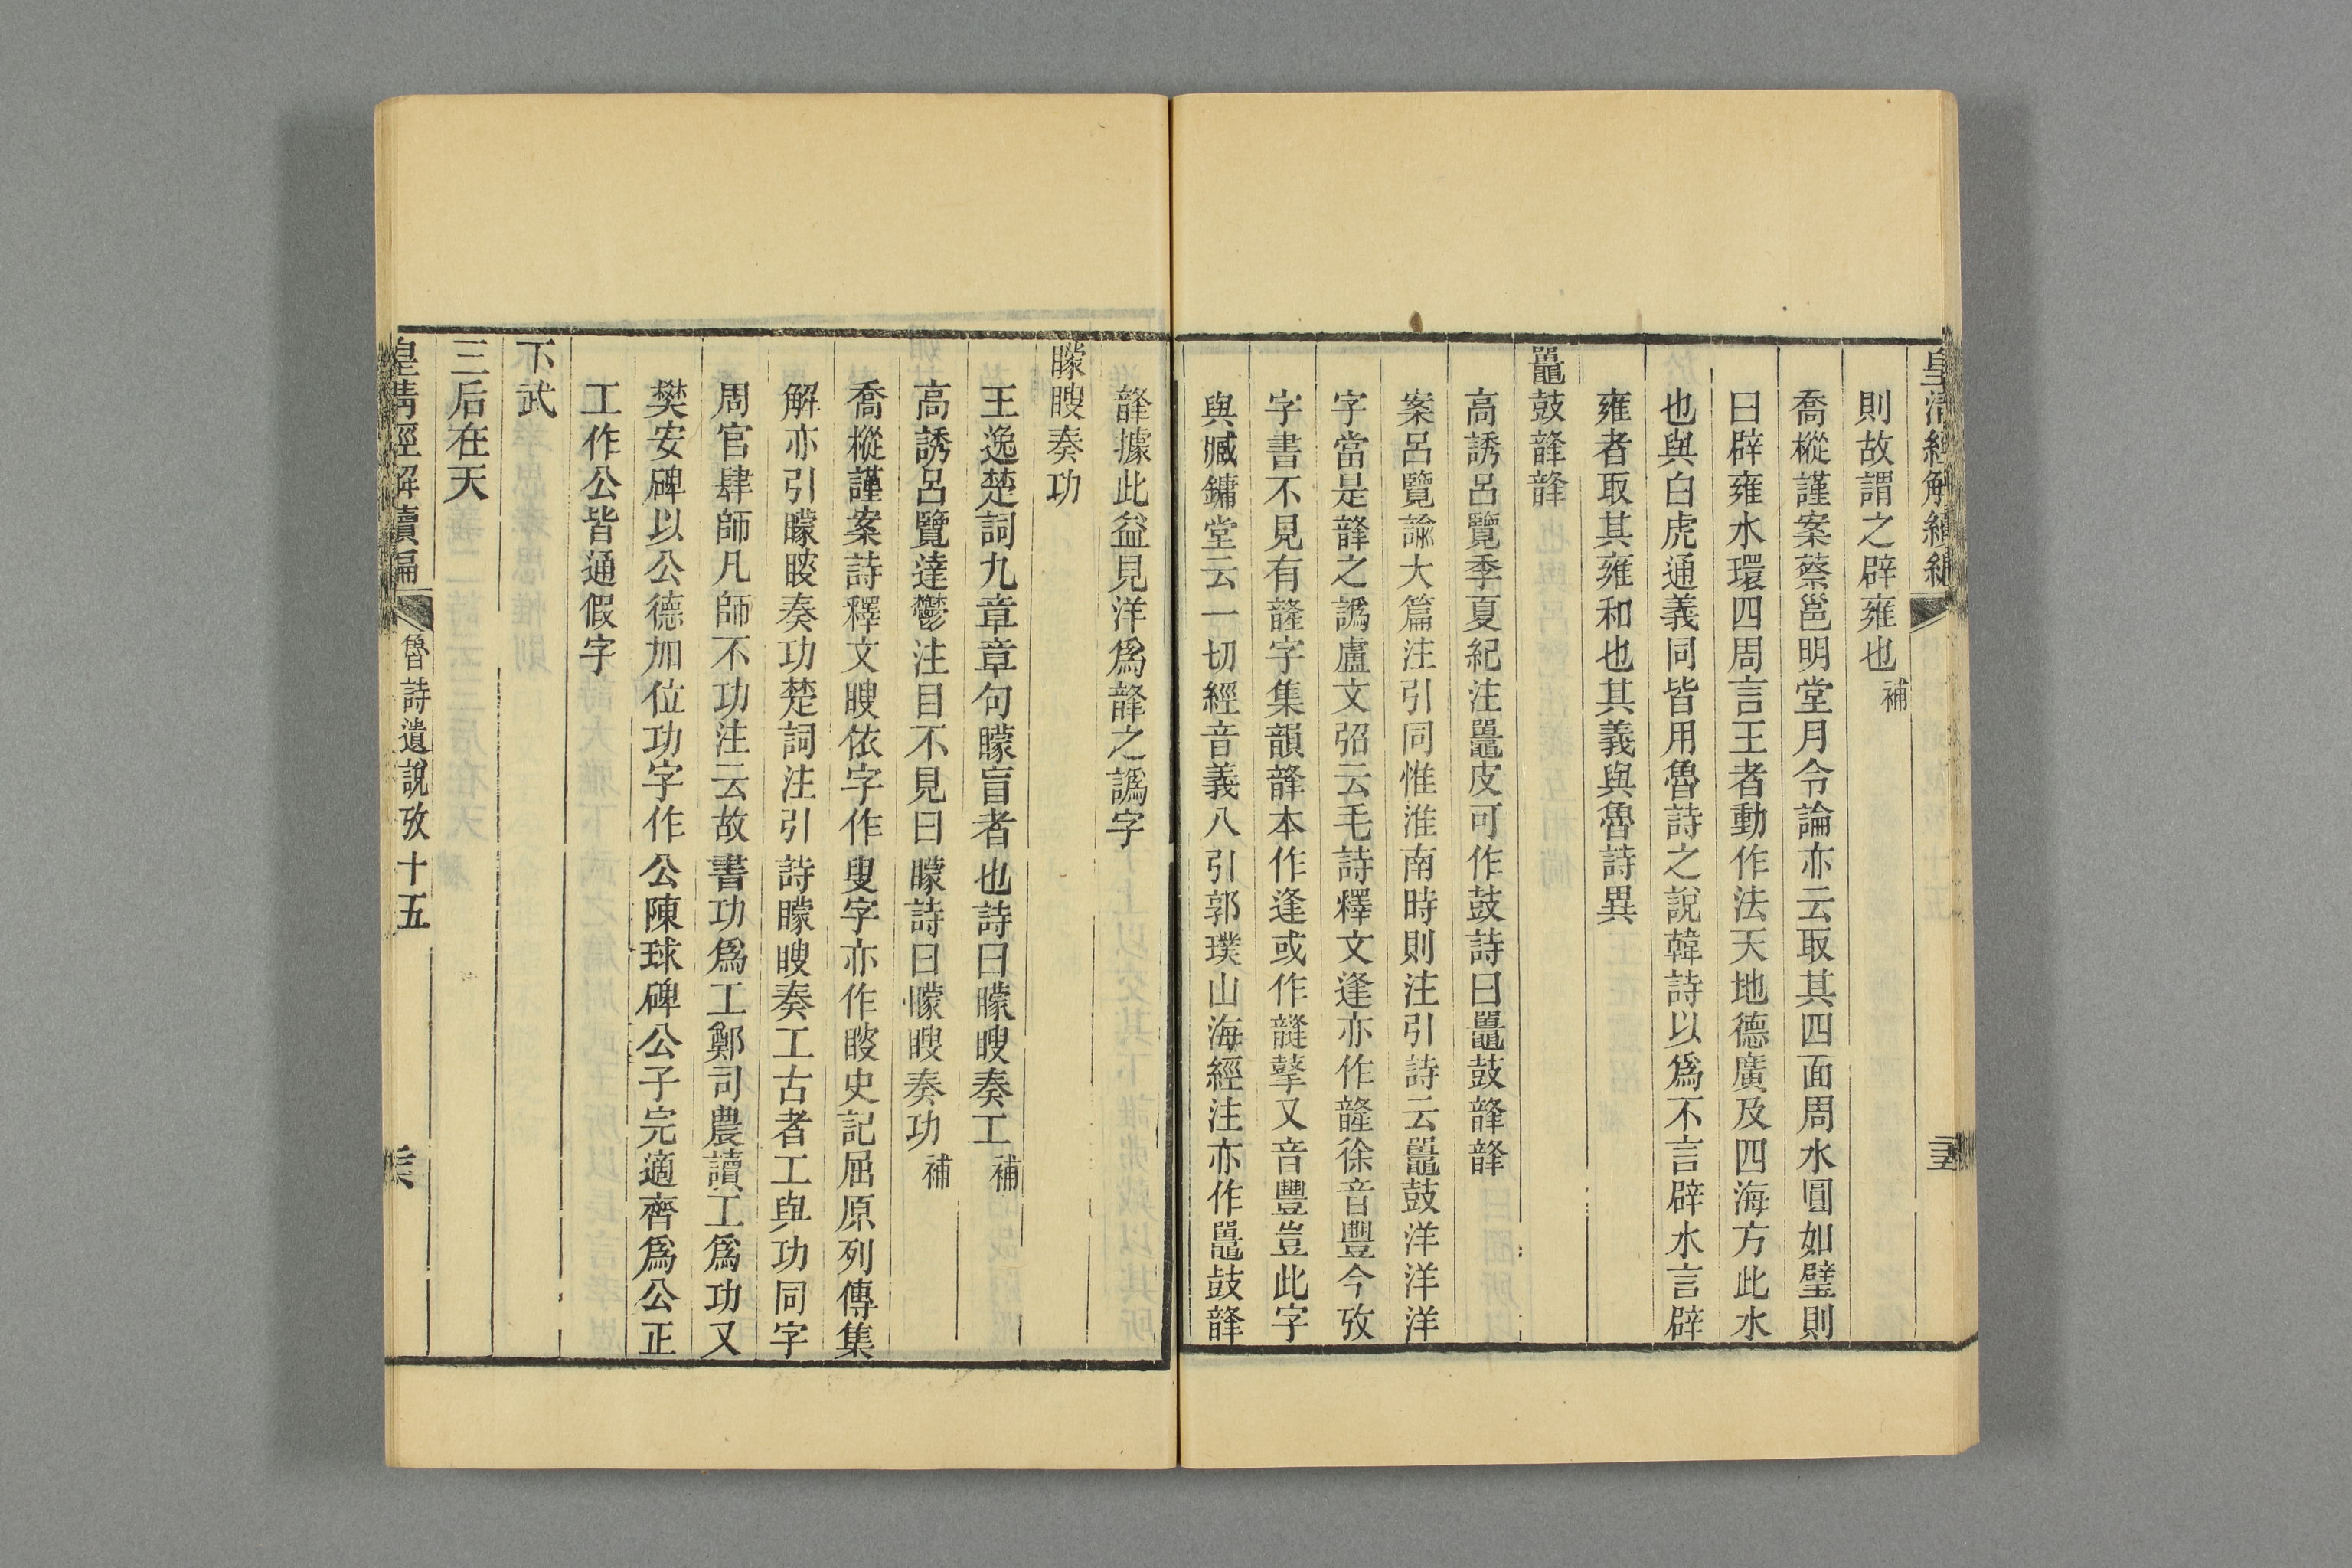 皇清經解續編
則故謂之辟雍也補
喬樅謹案蔡邕明堂月令論亦云取其四面周水圜如璧則
曰辟雍水環四周言王者動作法天地德廣及四海方此水
也與白虎通義同皆用魯詩之說韓詩以爲不言辟水言辟
雍者取其雍和也其義與魯詩異
鼉鼓韸韸
高誘呂覽季夏紀注鼉皮可作鼓詩曰鼉鼓韸韸
案呂覽諭大篇注引同惟淮南時則注引詩云鼉鼓洋洋洋
字當是韸之譌盧文弨云毛詩釋文逢亦作韸徐音豐今攷
字書不見有韸字集韻韸本作逢或作韼鼜又音豐豈此字
與臧鏞堂云一切經音義八引郭璞山海經注亦作鼉鼓韸
韸據此益見洋爲韸之譌字
矇瞍奏功
王逸楚詞九章章句矇盲者也詩曰矇瞍奏工補
高誘呂覽達鬱注目不見曰矇詩曰矇瞍奏功補
喬樅謹案詩釋文瞍依字作叟字亦作䀮史記屈原列傳集
解亦引矇䀮奏功楚詞注引詩矇瞍奏工古者工與功同字
周官肆師凡師不功注云故書功爲工鄭司農讀工爲功又
樊安碑以公德加位功字作公陳球碑公子完適齊爲公正
工作公皆通假字
下武
三后在天
皇清經解續編 魯詩遺說攷十五